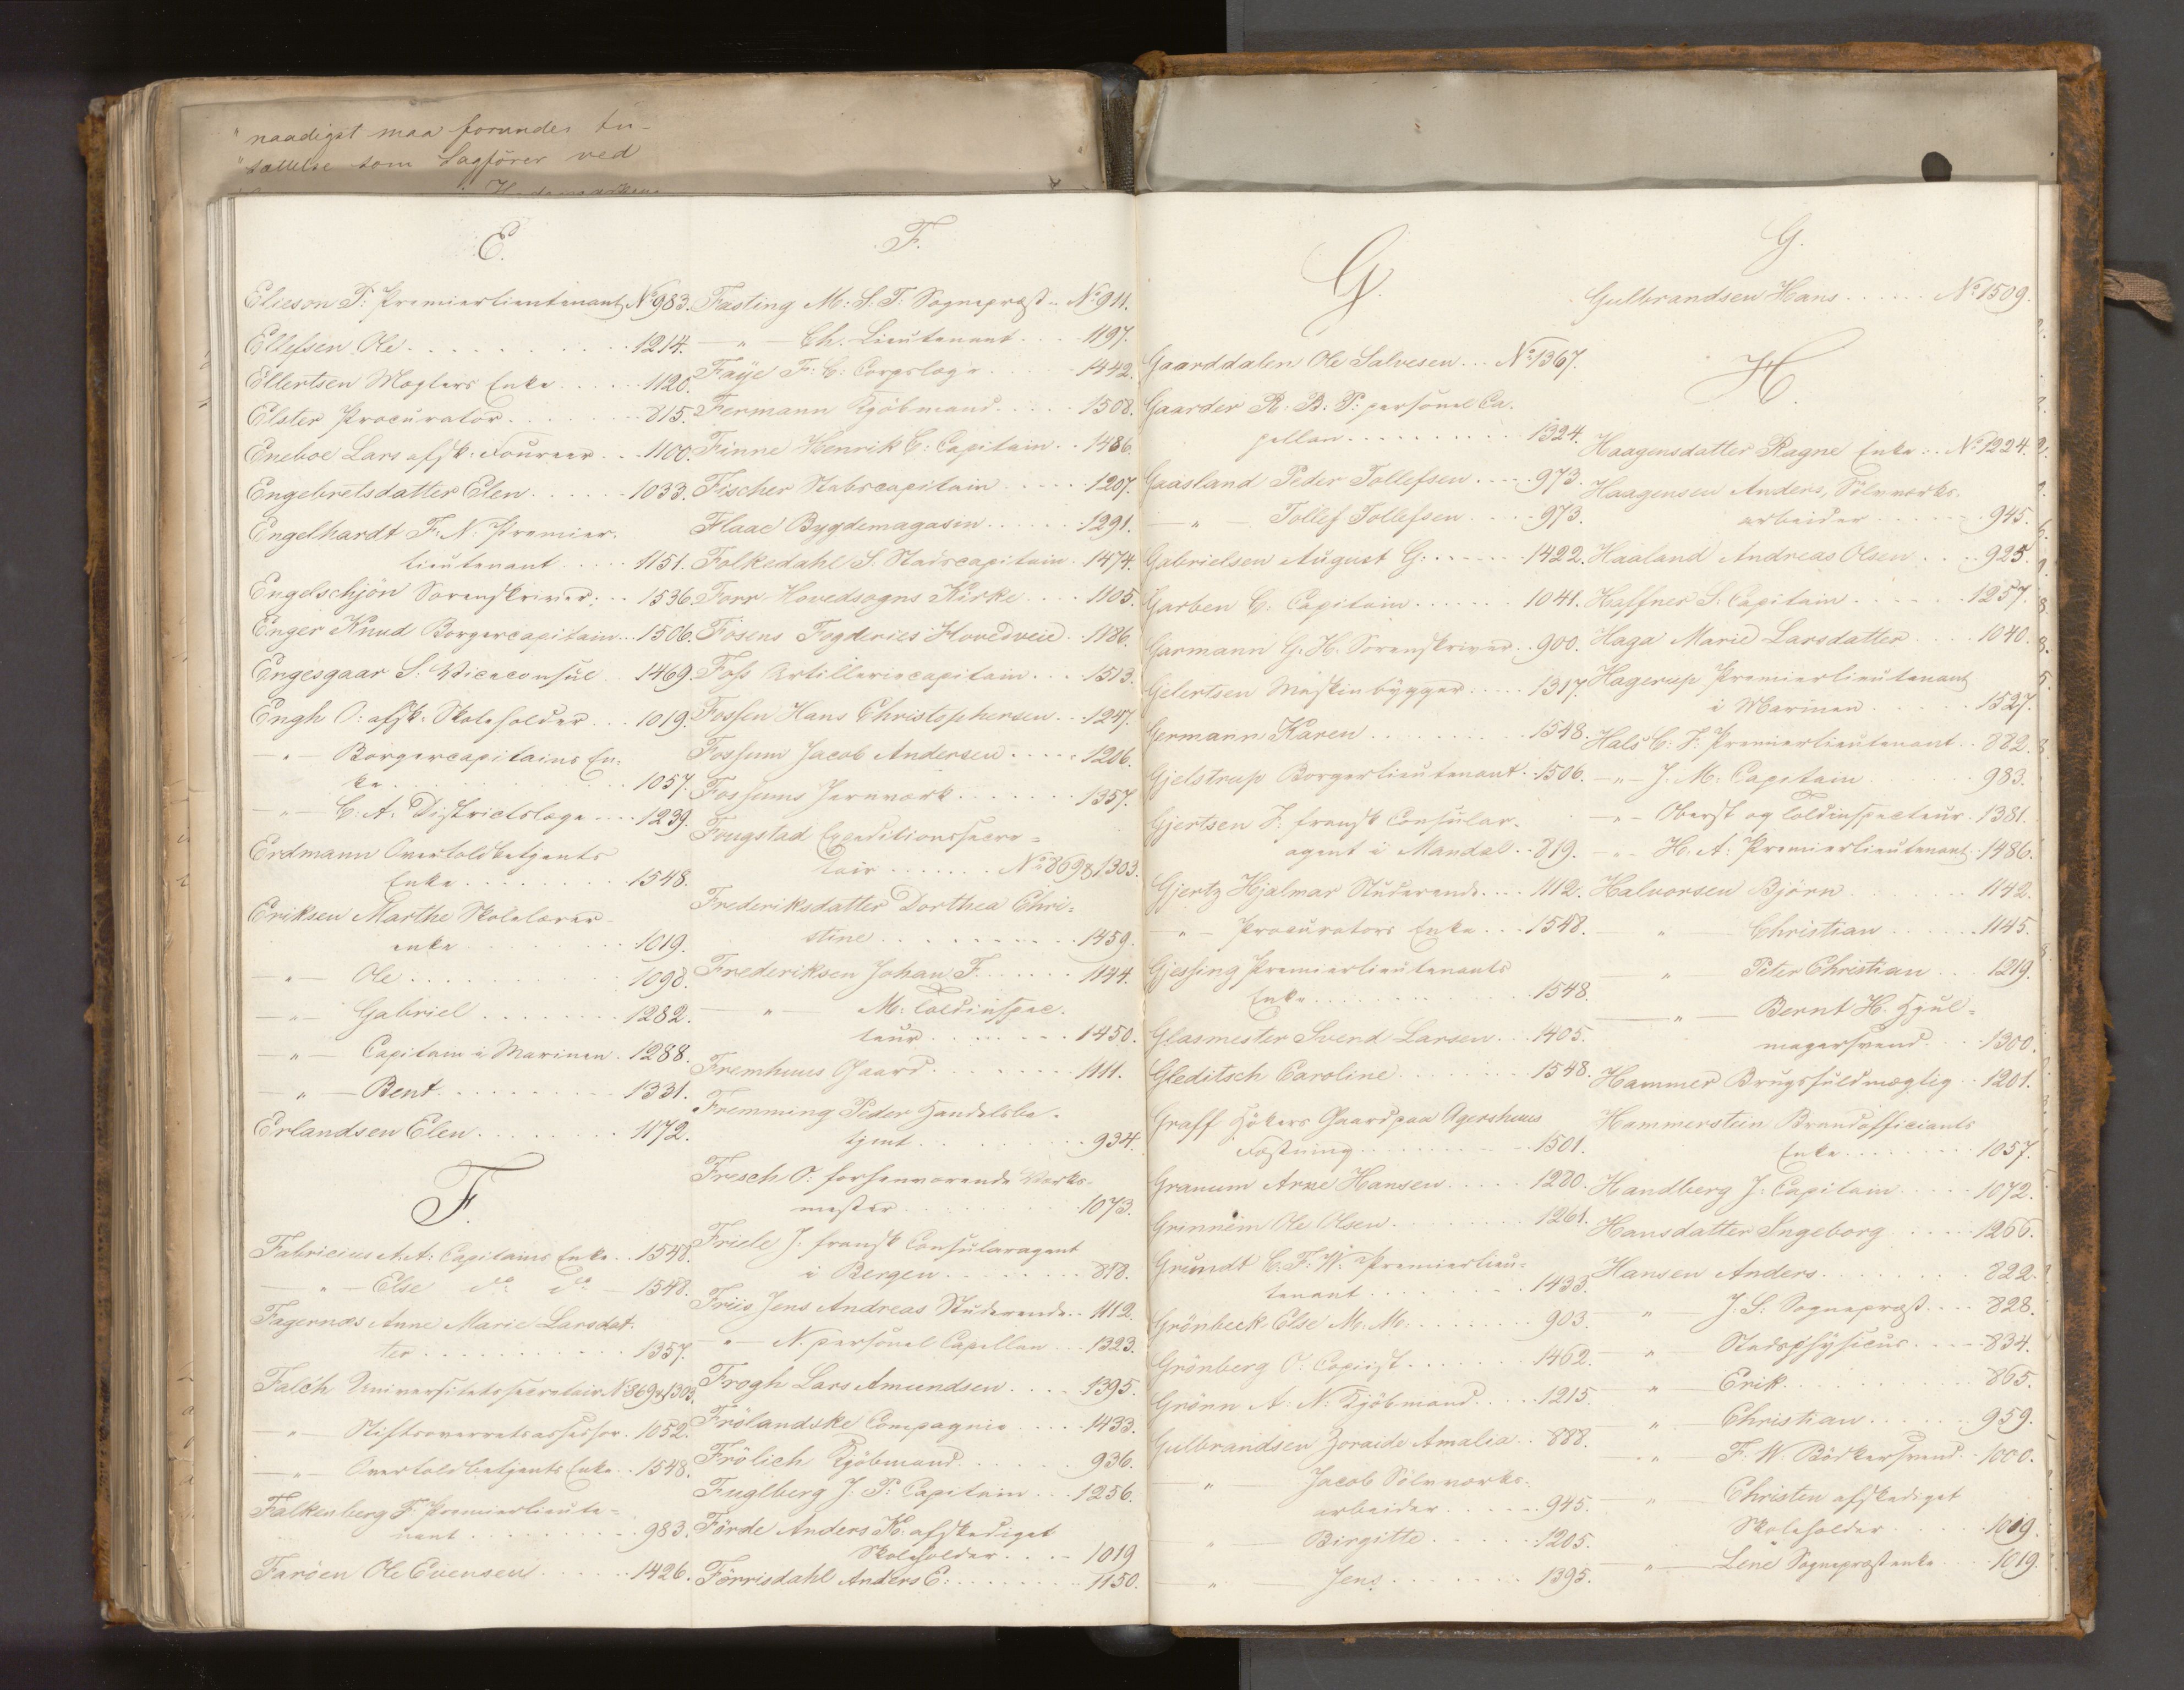 "naadigst maa forundes An-
"sættelse som Sagförer ved
E.
Elieson P: Premierlieutenant No 983.
Ellefsen Ole . . . 1214.
Ellertsen Mæglers Enke . . . 1120.
Elster Procurator . . . 815.
Eneboe Lars afsk: Foureer . . . 1100.
Engebretsdatter Elen . . . 1033.
Engelhardt F: N: Premier-
lieutenant . . . 1151.
Engelschjön Sorenskriver . . . 1536.
Enger Knud Borgercapitain . . . 1506.
Engesgaar S: Viceconsul . . . 1469.
Engh O: afsk: Skoleholder . . . 1019.
— " — Borgercapitains En-
ke . . . 1057.
— " — C: A: Districtslæge . . . 1239.
Erdmann Overtoldbetjents
Enke . . . 1548.
Eriksen Marthe Skolelærer-
enke . . . 1019.
— " — Ole . . . 1098.
— " — Gabriel . . . 1282.
— " — Capitain i Marinen . 1288.
— " — Bent . . . 1331.
Erlandsen Elen . . . 1172.
F.
Fabricius A. A: Capitains Enke . . 1548.
— " — Else do do — 1548.
Fagernæs Anne Marie Larsdat-
ter . . . 1357.
Falch Universitetssecretair No 869 & 1303.
— " — Stiftsoverretsassessor . 1052.
— " — Overtoldbetjents Enke . . 1548.
Falkenberg F: Premierlieute-
nant . . . 983.
Faröen Ole Evensen . . . 1426.
F.
Fasting M: S: T: Sognepræst . . No 911.
— " — Ch. Lieutenant . . . 1197.
Faye F: C: Corpslæge . . . 1442.
Fermann Kjöbmand . . . 1508.
Finne Henrik C: Capitain . . 1486.
Fischer Stabscapitain . . . 1207.
Flaae Bygdemagasin . . . 1291.
Folkedahl S. Stadscapitain . 1474.
Forr Hovedsogns Kirke . . . 1105.
Fosens Fogderies Hovedveie . 1186.
Foss Artilleriecapitain . . . 1513.
Fossen Hans Christophersen . . 1247.
Fossum Jacob Andersen . . . 1206.
Fossums Jernværk . . . 1357.
Fougstad Expeditionssecre-
tair . . . No 869 & 1303.
Frederiksdatter Dorthea Chri-
stine . . . 1459.
Frederiksen Johan F. . . . 1144.
— " — M: Toldinspec-
teur . . . 1450.
Fremhuus Gaard . . . 1111.
Fremming Peder Handelsbe-
tjent . . . 934.
Fresch O: forhenværende Værks-
mester . . . 1073.
Friele J: fransk Consularagent
i Bergen . . . 818.
Friis Jens Andreas Studerende . . 1112.
— " — N. personel Capellan . . . 1323.
Frogh Lars Amundsen . . . 1395.
Frölandske Compagnie . . . 1433.
Frölich Kjöbmand . . . 936.
Fuglberg J. P: Capitain . . . 1256.
Förde Anders K: afskediget
Skoleholder . . . 1019
Förrisdahl Anders E: . . . 1150.
G.
Gaarddalen Ole Salvesen . . . No 1367.
Gaarder R. B. P: personel Ca-
pellan . . . 1324.
Gaasland Peder Tollefsen . . . 973.
— " — Tollef Tollefsen . . . 973.
Gabrielsen August G: . . . 1422.
Garben C: Capitain . . . 1041.
Garmann G. H. Sorenskriver . . 900.
Gelertsen Maskinbygger . . . 1317.
Germann Karen . . . 1548.
Gjelstrup Borgerlieutenant . . 1506.
Gjertsen J: fransk Consular-
agent i Mandal . . 819.
Gjertz Hjalmar Studerende . . . 1112.
— " — Procurators Enke . . . 1548.
Gjessing Premierlieutenants
Enke . . . 1548.
Glasmester Svend Larsen . . . 1405.
Gleditsch Caroline . . . 1548.
Graff Hökers Gaard paa Agershuus
Fæstning . . . 1501.
Granum Arne Hansen . . . 1280.
Grinneim Ole Olsen . . . 1261.
Grundt C. F: W: Premierlieu-
tenant . . . 1433.
Grönbeck Else M. M: . . . 903.
Grönberg O: Copiist . . . 1462.
Grönn A: N: Kjöbmand . . . 1215.
Gulbrandsen Zoraide Amalia . . 888.
— " — Jacob Sölvværks-
arbeider . . . 945.
— " — Birgitte . . . 1205.
— " — Jens . . . 1395.
G.
Gulbrandsen Hans . . . No 1509.
H.
Haagensdatter Ragne Enke . . No 1224.
Haagensen Anders, Sölvværks-
arbeider . . . 945.
Haaland Andreas Olsen . . . 925.
Haffner S: Capitain . . . 1257.
Haga Marie Larsdatter . . . 1040.
Hagerup Premierlieutenant
i Marinen . . . 1527.
Hals C: F: Premierlieutenant . . 882.
— " — J. M: Capitain 983.
— " — Oberst og Toldinspecteur . 1381.
— " — H. A: Premierlieutenant . 1486.
Halvorsen Björn . . . 1142.
— " — Christian . . . 1145.
— " — Peter Christian . . . 1219.
— " — Bernt H. Hjul-
magersvend . . . 1300.
Hammer Brugsfuldmægtig . . 1201.
Hammerstein Brandofficiants
Enke . . . 1057.
Handberg J: Capitain . . . 1072.
Hansdatter Ingeborg . . . 1266.
Hansen Anders . . . 822.
— " — J. S: Sognepræst . . . 828.
— " — Stadsphysicus . . . 834.
— " — Erik . . . 865.
— " — Christian . . . 959.
— " — F. W. Bödkersvend . . 1000.
— " — Christen afskediget
Skoleholder . . . 1019.
— " — Lene Sognepræstenke . . . 1019.